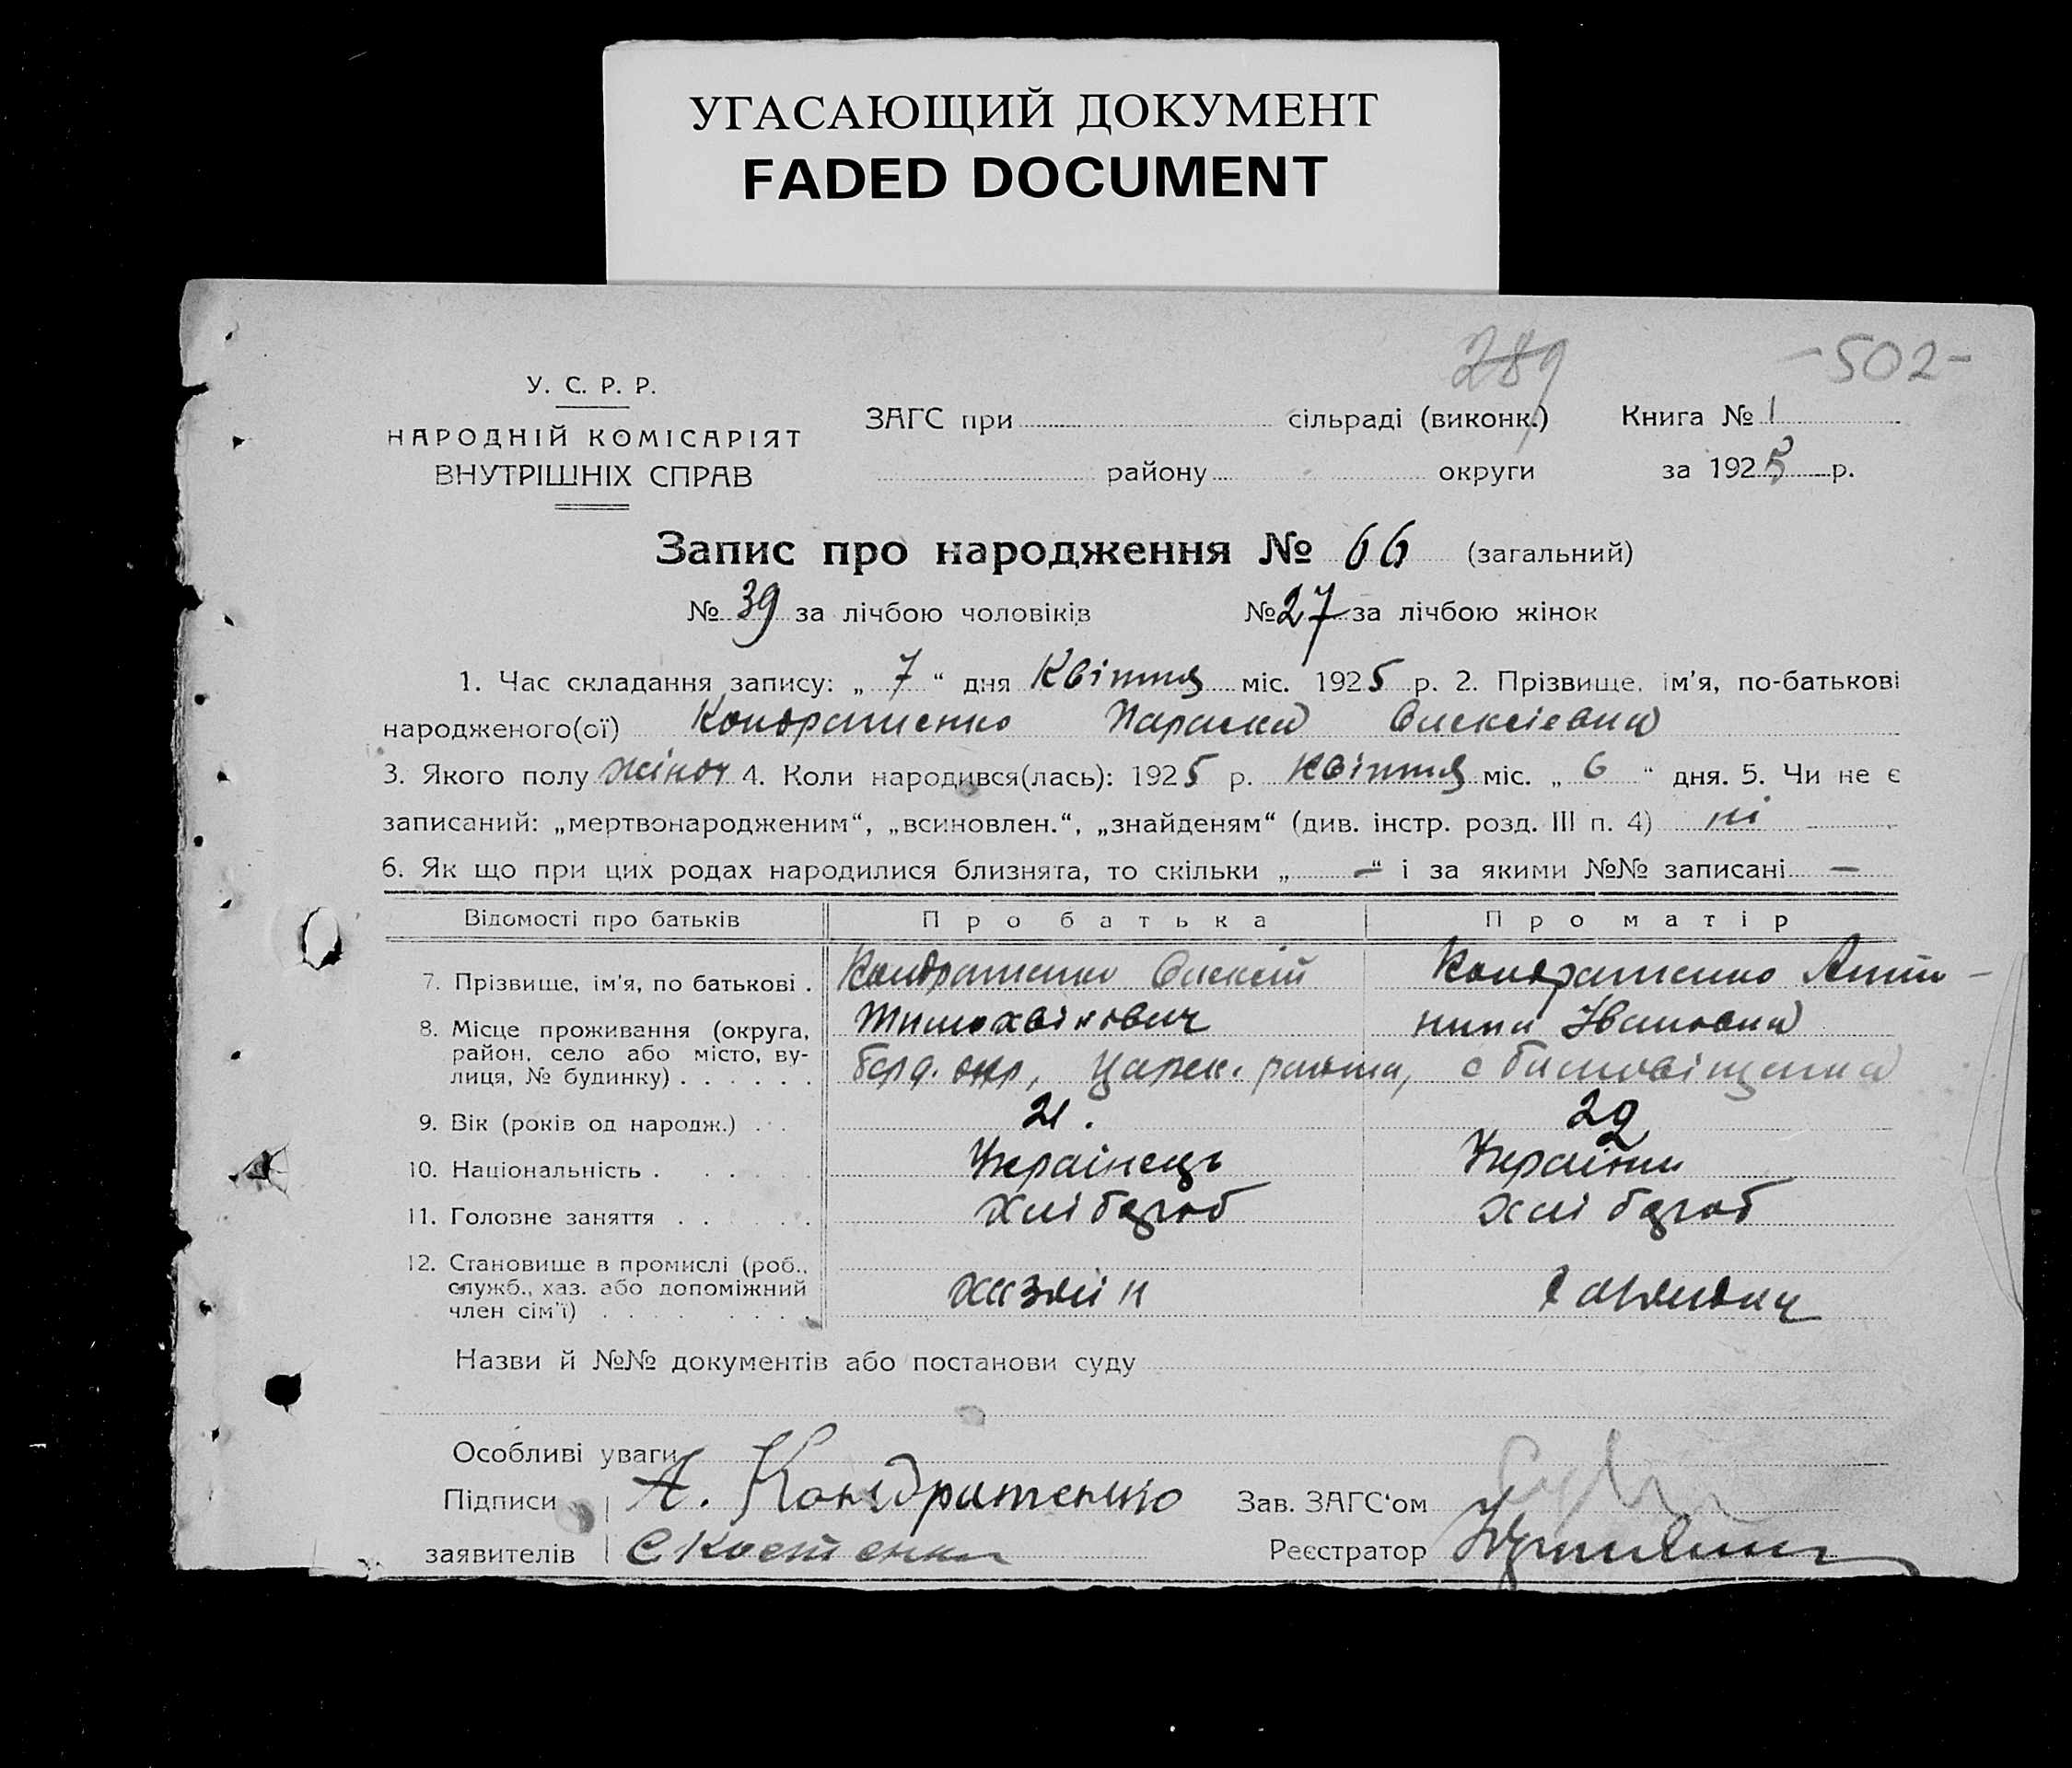 УГАСАЮЩИЙ ДОКУМЕНТ
FADED DOCUMENT
289
-502-
У. С. Р. Р.
НАРОДНІЙ КОМІСАРІЯТ
ВНУТРІШНІХ СПРАВ
ЗАГС при сільраді (виконк.) Книга № 1
району округи за 1925 р.
Запис про народження № 66 (загальний)
№ 39 за лічбою чоловіків № 27 за лічбою жінок
1. Час складання запису: „ 7 “ дня Квітня міс. 1925 р. 2. Прізвище, ім'я, по-батькові
народженого(ої) Кондратенко Параска Олексієвна
3. Якого полу жіноч 4. Коли народився(лась): 1925 р. Квітня міс. „ 6 “ дня. 5. Чи не є
записаний: „мертвонародженим“, „всиновлен.“, „знайденям“ (див. інстр. розд. III п. 4) ні
6. Як що при цих родах народилися близнята, то скільки „ — “ і за якими №№ записані —
Відомості про батьків Про батька Про матір
7. Прізвище, ім'я, по батькові . Кондратенко Олексій Кондратенко Анто-
Тимохвійович нина Івановна
8. Місце проживання (округа,
район, село або місто, ву-
лиця, № будинку) . . . . . . Берд. окр, Царек. района, с
9. Вік (років од народж.) . . 21. 29
10. Національність . . . . . Українець Українка
11. Головне заняття . . . . . Хлібороб хлібороб
12. Становище в промислі (роб.,
служб., хаз. або допоміжний
член сім'ї) . . . . . . . . хазяін
Назви й №№ документів або постанови суду
Особливі уваги
Підписи А. Кондратенко Зав. ЗАГС‘ом
заявителів Є Костенко Реєстратор